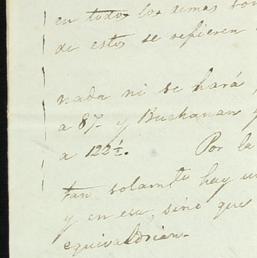 en todos los demas son
de estos se refieren
nada ni se hará
a 87. y Buchanan y
a 122½. Por la
tan solamte hay un
y en esa, sino que
equivaldrian.